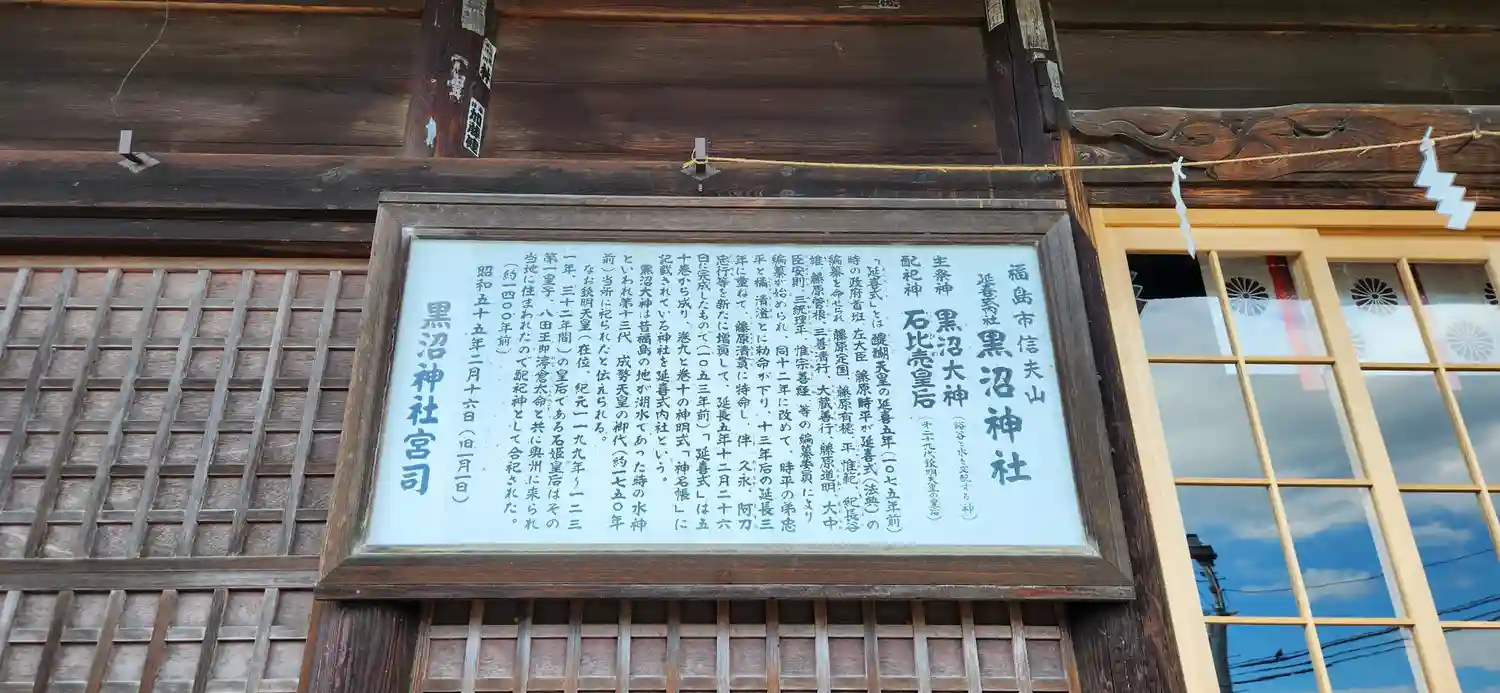 福島市信夫山
延喜式内社 黒沼神社
主祭神 黒沼大神 (谿谷と水を支配する神)
配祀神 石比売皇后 (第二十九代欽明天皇の皇后)
「延喜式」とは醍醐天皇の延喜五年(一〇七五年前)
時の政府首班 左大臣 藤原時平が延喜式(法典)の
編纂を命じられ 藤原定国、藤原有穂、平 惟範、紀長谷
雄、藤原菅根、三善清行、大蔵善行、藤原道明、大中
臣安則、三統理平、惟宗善経、等の編纂委員により
編纂が始められ、同十二年に改めて、時平の弟忠
平と橘 清澄とに勅命が下り、十三年后の延長三
年に重ねて、藤原清貫に特命し、伴 久永、阿刀
忠行等を新たに増員して、延長五年十二月二十六
日に完成したもので(一〇五三年前)「延喜式」は五
十巻から成り、巻九と巻十の神明式「神名帳」に
記載されている神社を延喜式内社という。
黒沼大神は昔福島の地が湖水であった時の水神
といわれ第十三代 成務天皇の御代(約一七五〇年
前)当所に祀られたと伝えられる。
なお欽明天皇(在位 紀元一一九九年〜一二三
一年、三十二年間)の皇后である石姫皇后はその
第一皇子、八田王即渟倉太命と共に奥州に来られ
当地に住まわれたので配祀神として合祀された。
(約一四〇〇年前)
昭和五十五年二月十六日(旧一月一日)
黒沼神社宮司